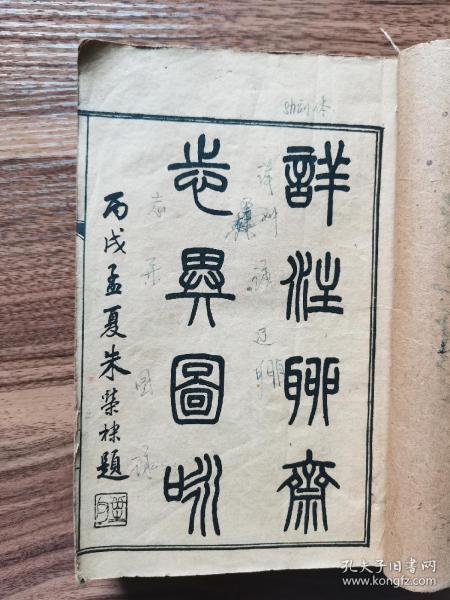 詳注聊齋
志異圖咏
丙戌孟夏朱榮棣題
孔夫子旧书网
www.kongfz.com